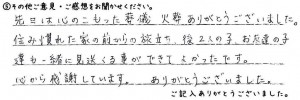 ⑤その他ご意見・ご感想をお聞かせください。
先日は心のこもった葬儀、火葬ありがとうございました。
住み慣れた家の前からの旅立ち、後2人の子、お友達の子
達も一緒に見送くる事ができてよかったです。
心から感謝しています。 ありがとうございました。
ご記入ありがとうございました。